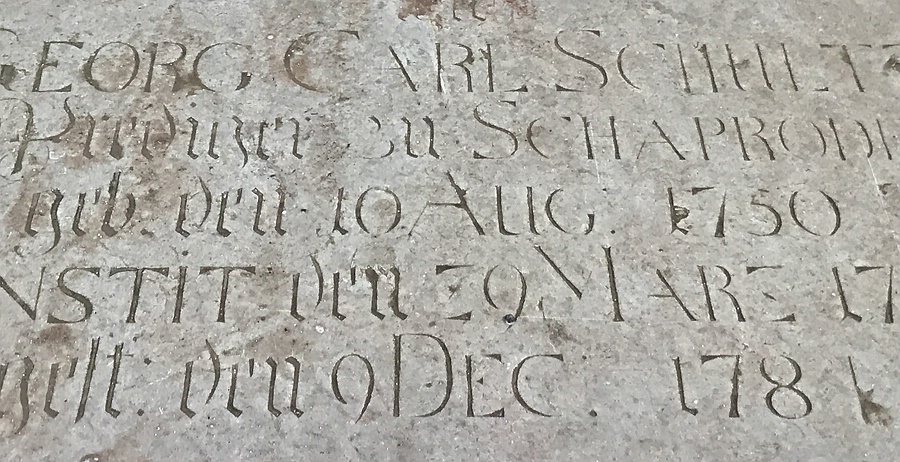 GEORG CARL SCHULTZ
Prediger zu SCHAPRODE
geb. den 10 AUG. 1750
INSTIT den 29 MART 17
gest: den 9 DEC. 178